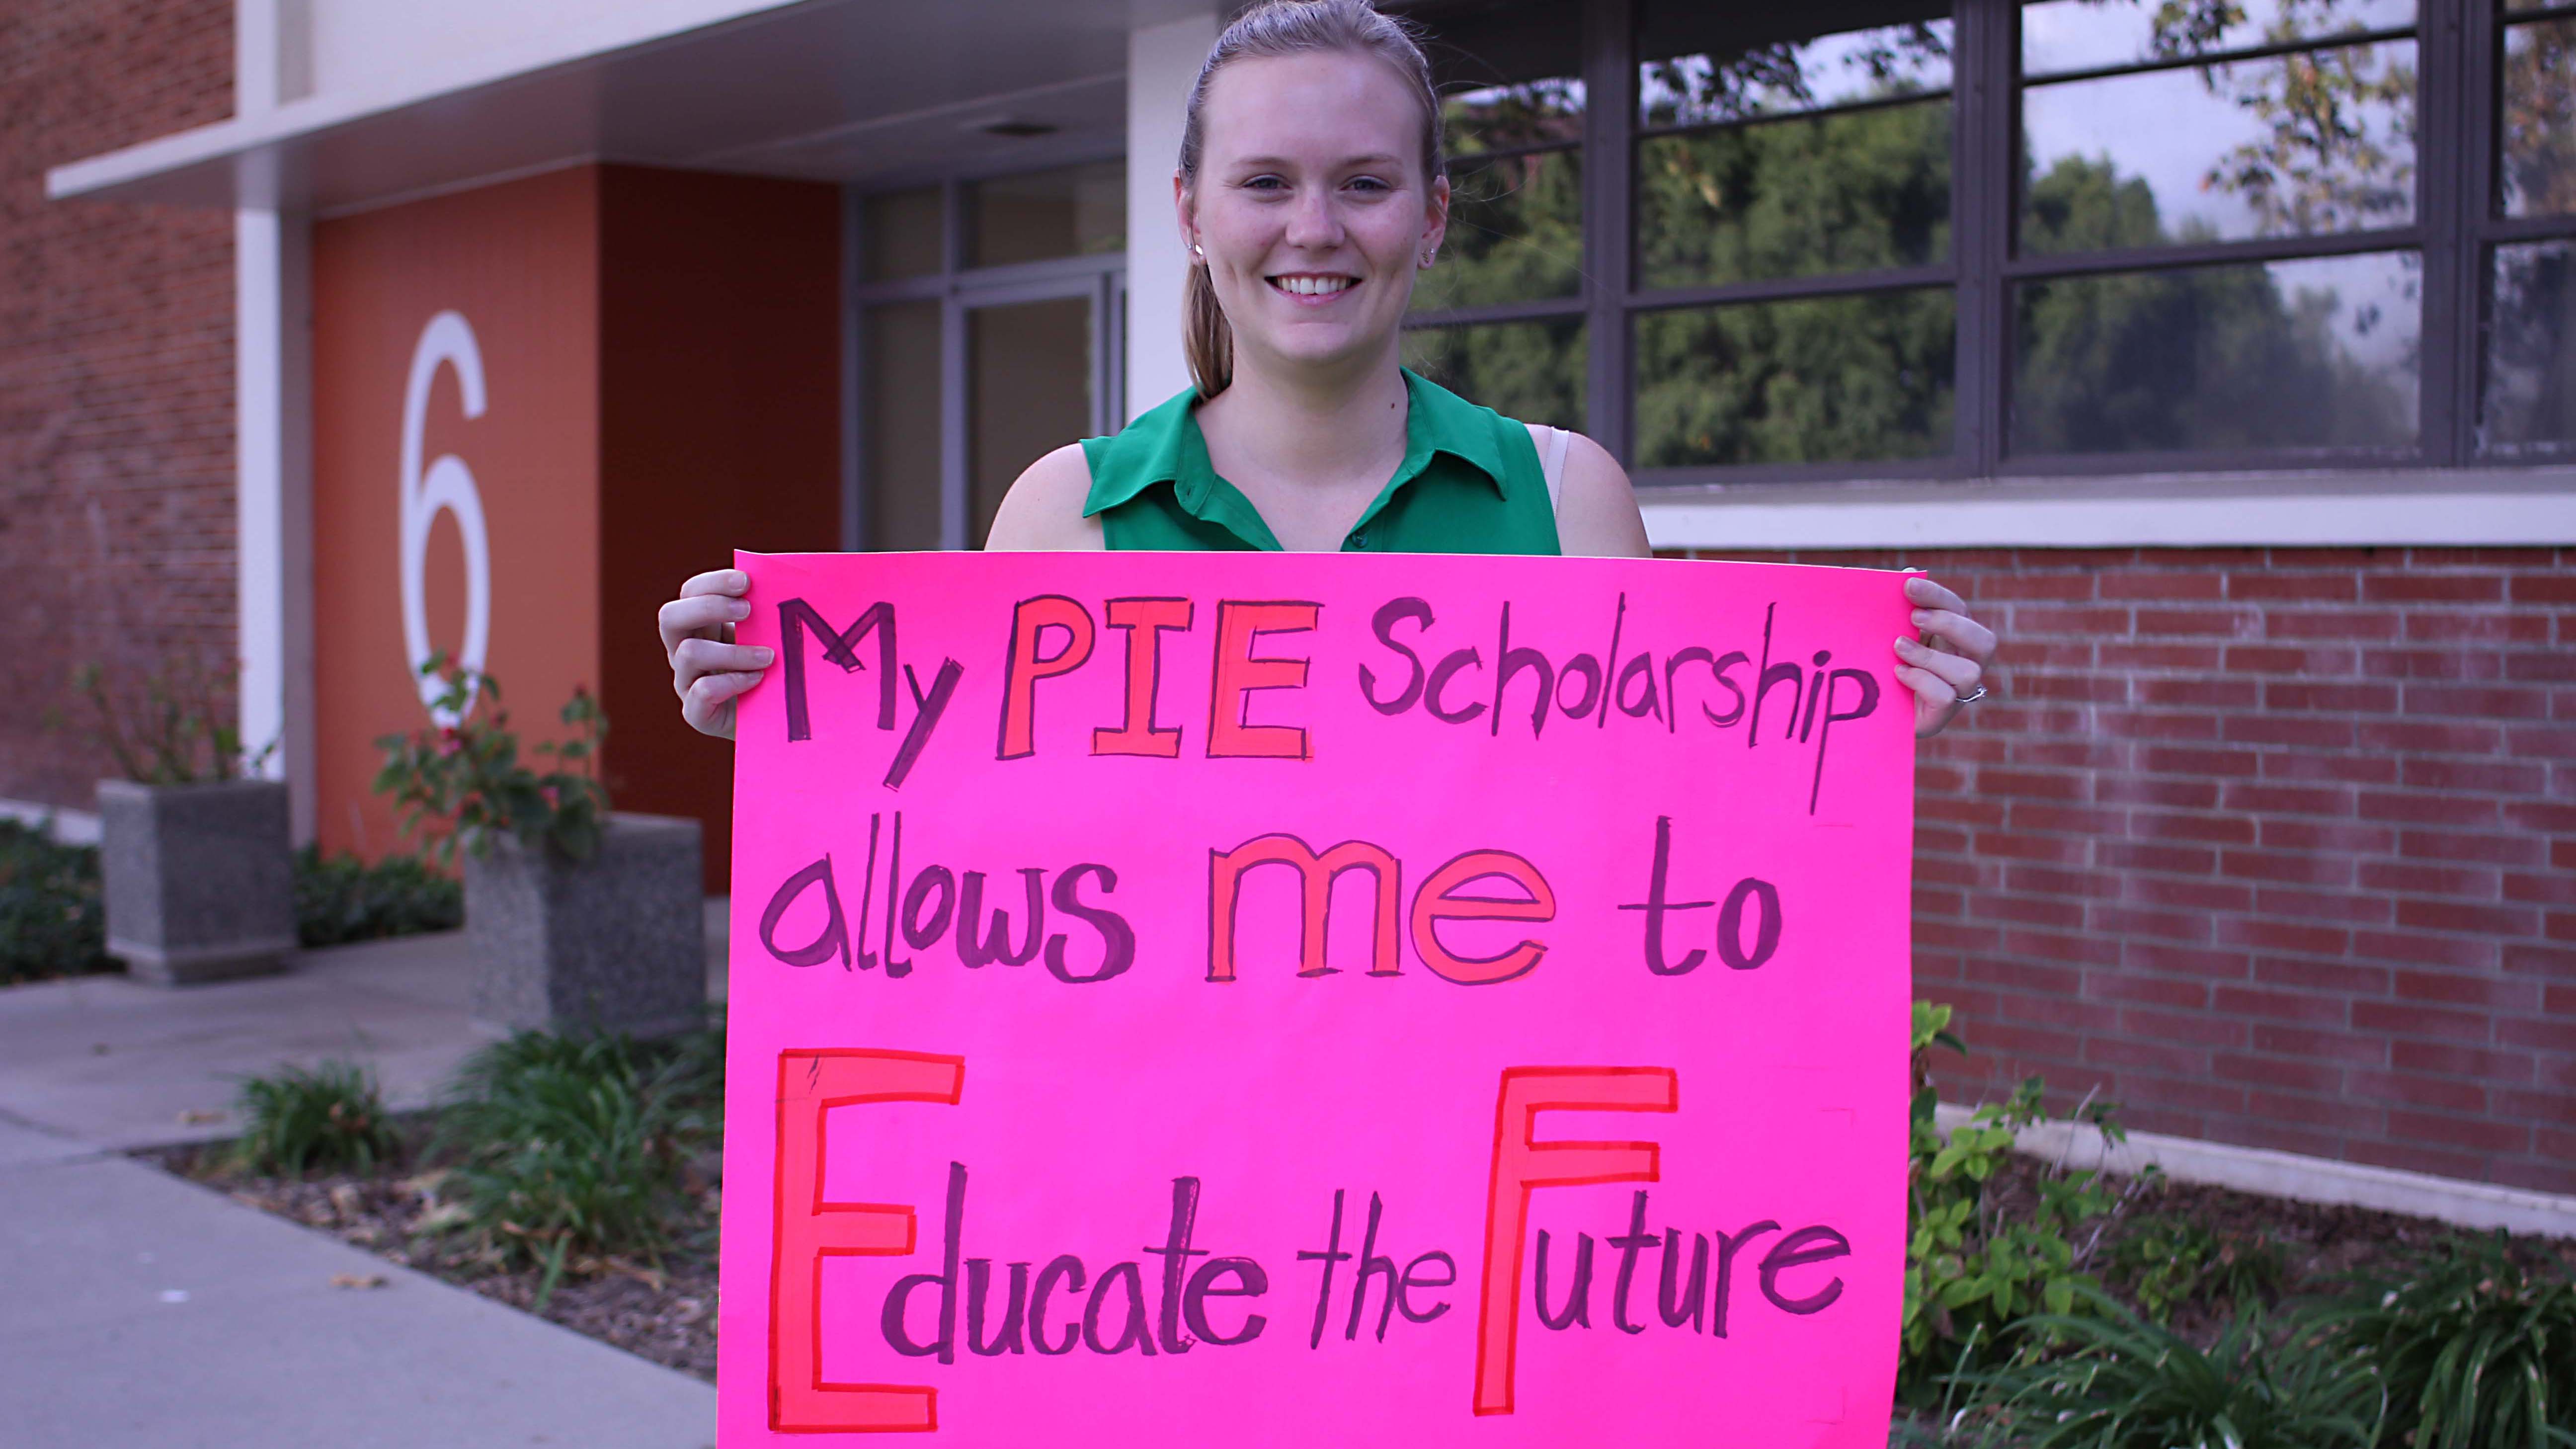 6
My PIE Scholarship
allows me to
Educate the Future